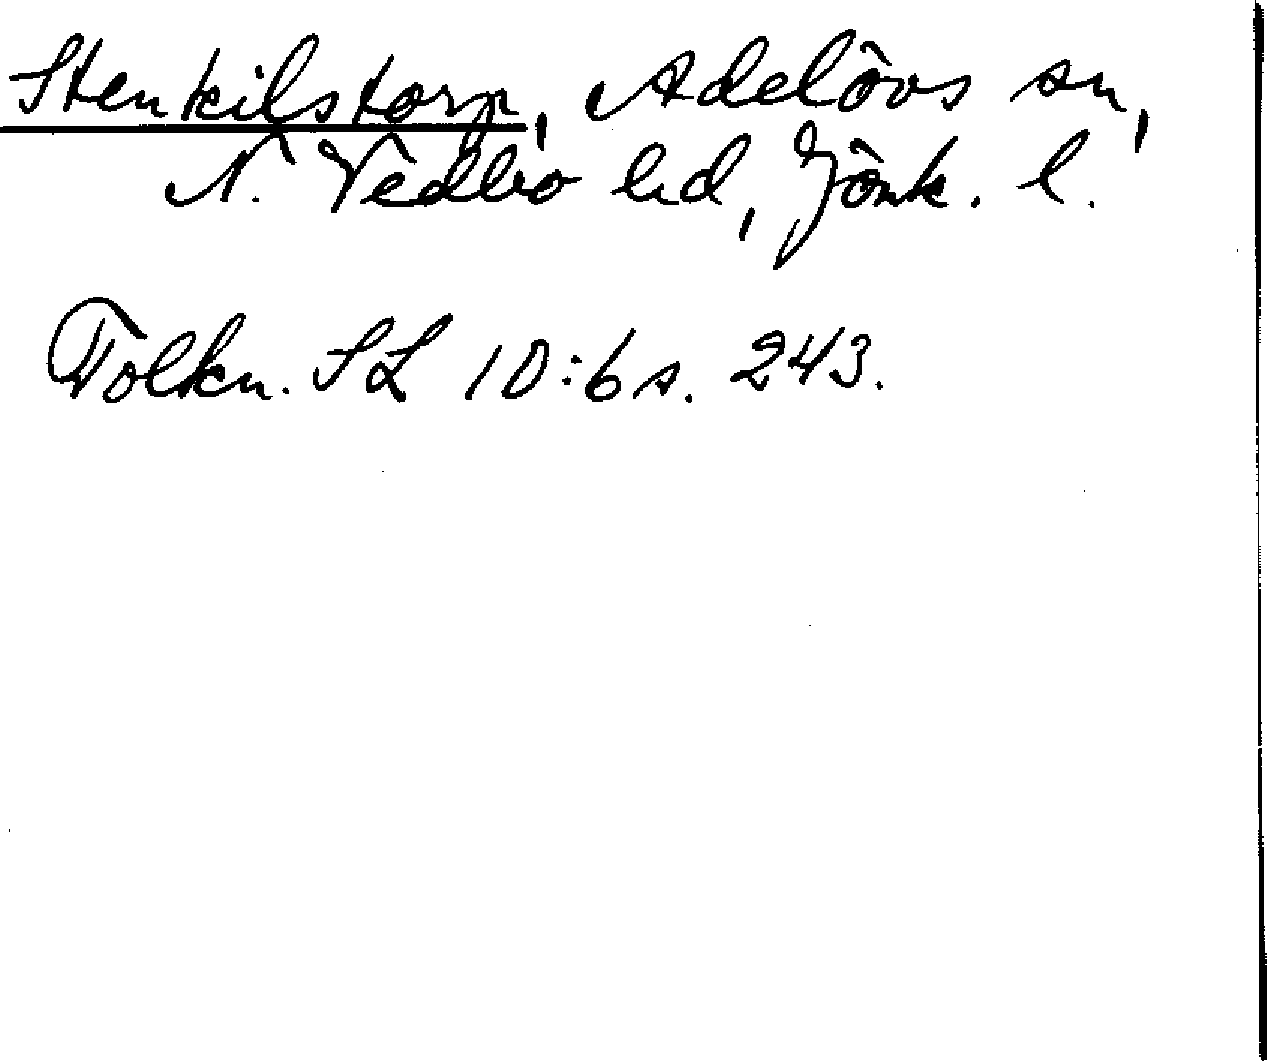 Stenkilstorp, Adelövs sn,
N. Vedbo hd, Jönk. l.
Tolkn. SL 10:6 s. 243.